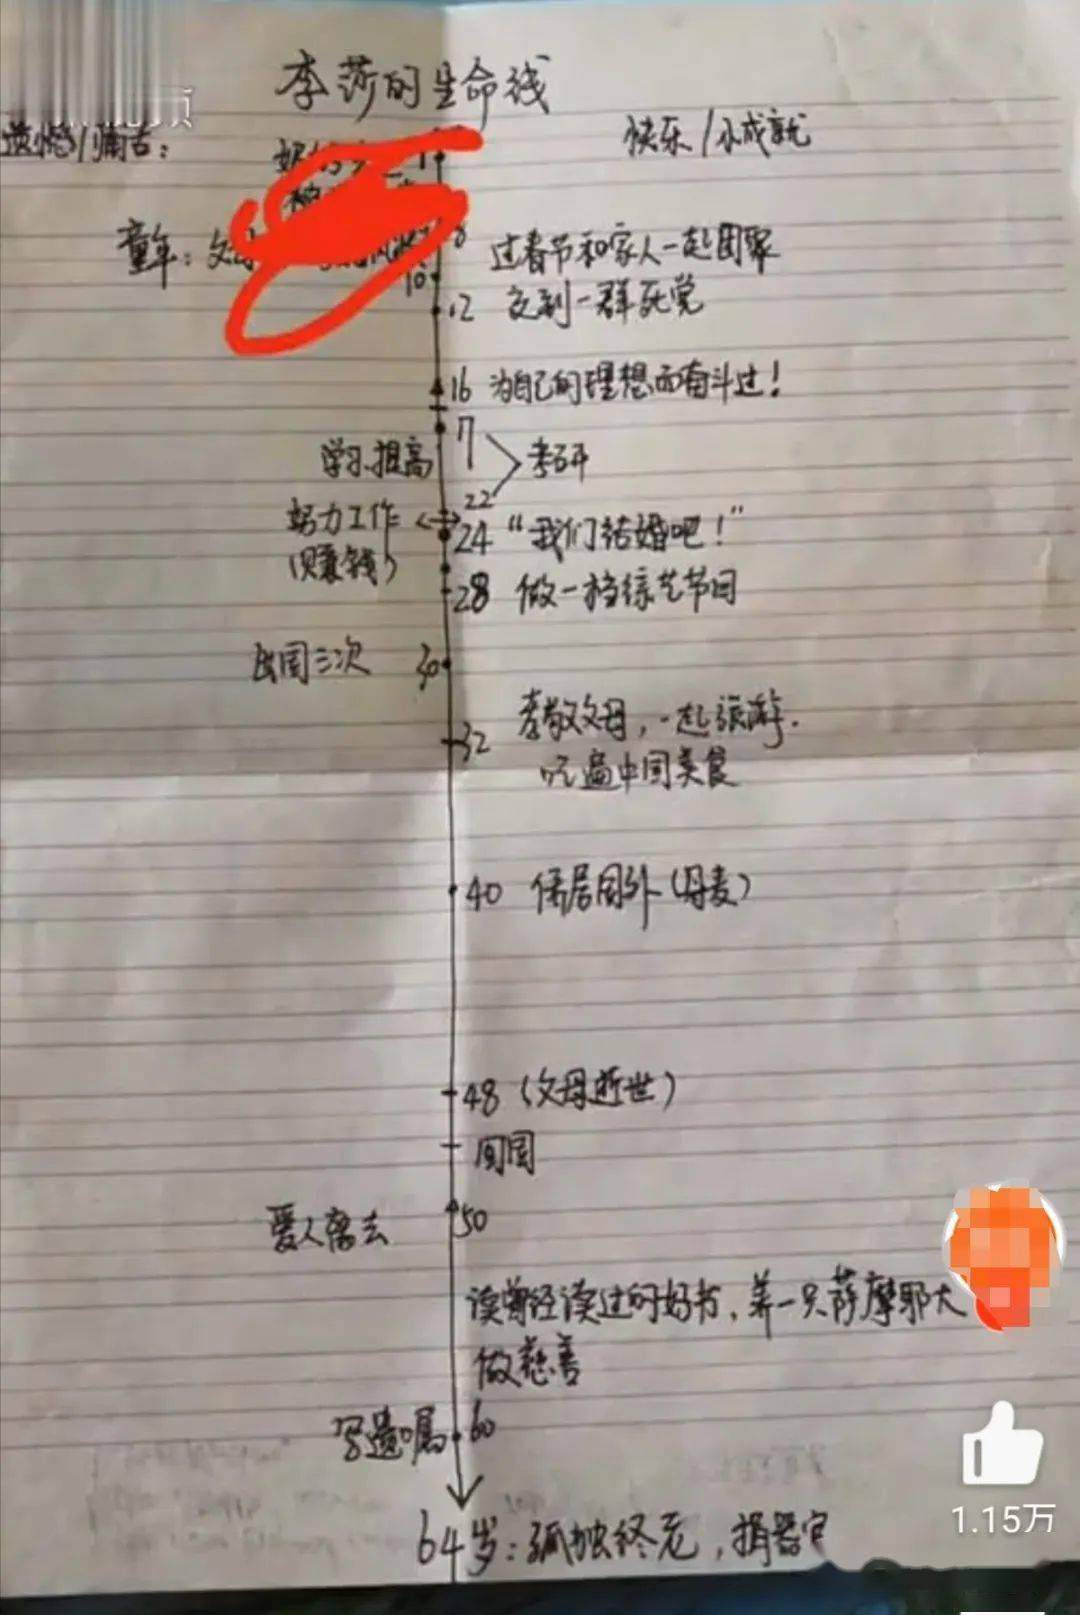 李莎的生命线
遗憾/痛苦:
快乐/小成就
1
童年:父
8 过春节和家人一起团聚
10
12 交到一群死党
16 为自己的理想而奋斗过!
17
学习提高 考研
22
努力工作
(赚钱)
24 “我们结婚吧!”
28 做一档综艺节目
出国三次 30
32 孝敬父母,一起旅游.
吃遍中国美食
40 侨居国外(丹麦)
48 (父母逝世)
回国
爱人离去 50
读曾经读过的好书,养一只萨摩耶犬
做慈善
写遗嘱 60
64岁:孤独终老,捐器官
1.15万